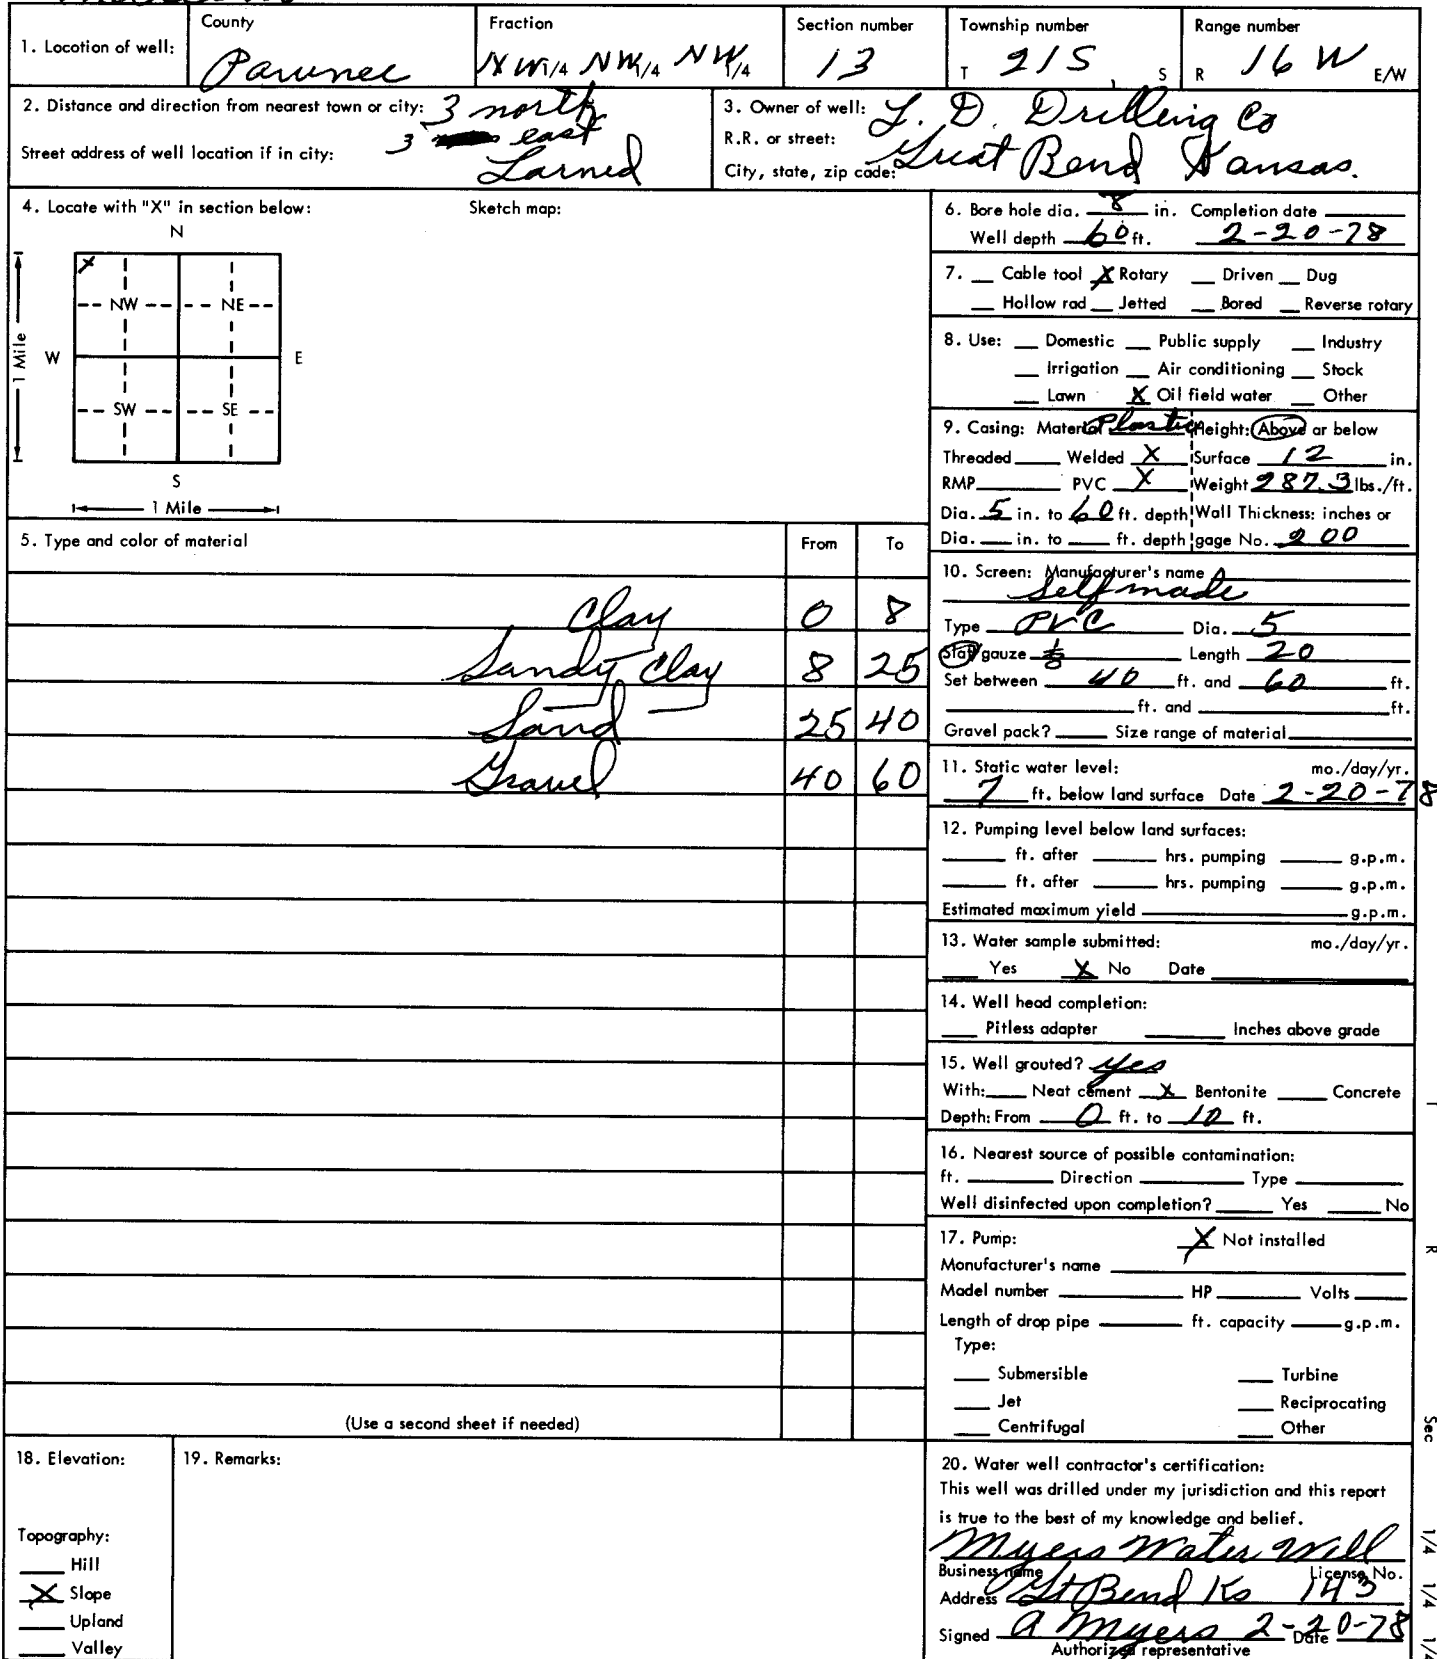 1. Location of well:
County
Pawnee
Fraction
NW1/4 NW1/4 NW1/4
Section number
13
Township number
T 21S, S
Range number
R 16 W E/W
2. Distance and direction from nearest town or city: 3 north
3 east
Street address of well location if in city: Larned
3. Owner of well: L. D. Drilling Co
R.R. or street:
City, state, zip code: Great Bend Kansas.
4. Locate with "X" in section below:
Sketch map:
N
X
NW NE
W E
1 Mile
SW SE
S
1 Mile
5. Type and color of material From To
Clay 0 8
Sandy Clay 8 25
Sand 25 40
Gravel 40 60
(Use a second sheet if needed)
6. Bore hole dia. 8 in. Completion date
Well depth 60 ft. 2-20-78
7. Cable tool X Rotary Driven Dug
Hollow rod Jetted Bored Reverse rotary
8. Use: Domestic Public supply Industry
Irrigation Air conditioning Stock
Lawn X Oil field water Other
9. Casing: Material Plastic Height: Above or below
Threaded Welded X Surface 12 in.
RMP PVC X Weight 287.3 lbs./ft.
Dia. 5 in. to 60 ft. depth Wall Thickness: inches or
Dia. in. to ft. depth gage No. 200
10. Screen: Manufacturer's name
Self made
Type PVC Dia. 5
Slot/gauze 1/8 Length 20
Set between 40 ft. and 60 ft.
ft. and ft.
Gravel pack? Size range of material
11. Static water level: mo./day/yr.
7 ft. below land surface Date 2-20-78
12. Pumping level below land surfaces:
ft. after hrs. pumping g.p.m.
ft. after hrs. pumping g.p.m.
Estimated maximum yield g.p.m.
13. Water sample submitted: mo./day/yr.
Yes X No Date
14. Well head completion:
Pitless adapter Inches above grade
15. Well grouted? yes
With: Neat cement X Bentonite Concrete
Depth: From 0 ft. to 10 ft.
16. Nearest source of possible contamination:
ft. Direction Type
Well disinfected upon completion? Yes No
17. Pump: X Not installed
Manufacturer's name
Model number HP Volts
Length of drop pipe ft. capacity g.p.m.
Type:
Submersible Turbine
Jet Reciprocating
Centrifugal Other
18. Elevation:
Topography:
Hill
X Slope
Upland
Valley
19. Remarks:
20. Water well contractor's certification:
This well was drilled under my jurisdiction and this report
is true to the best of my knowledge and belief.
Myers Water Well
Business name License No.
Address Gt Bend Ks 143
Signed A Myers 2-20-78 Date
Authorized representative
T
R
Sec
1/4 1/4 1/4